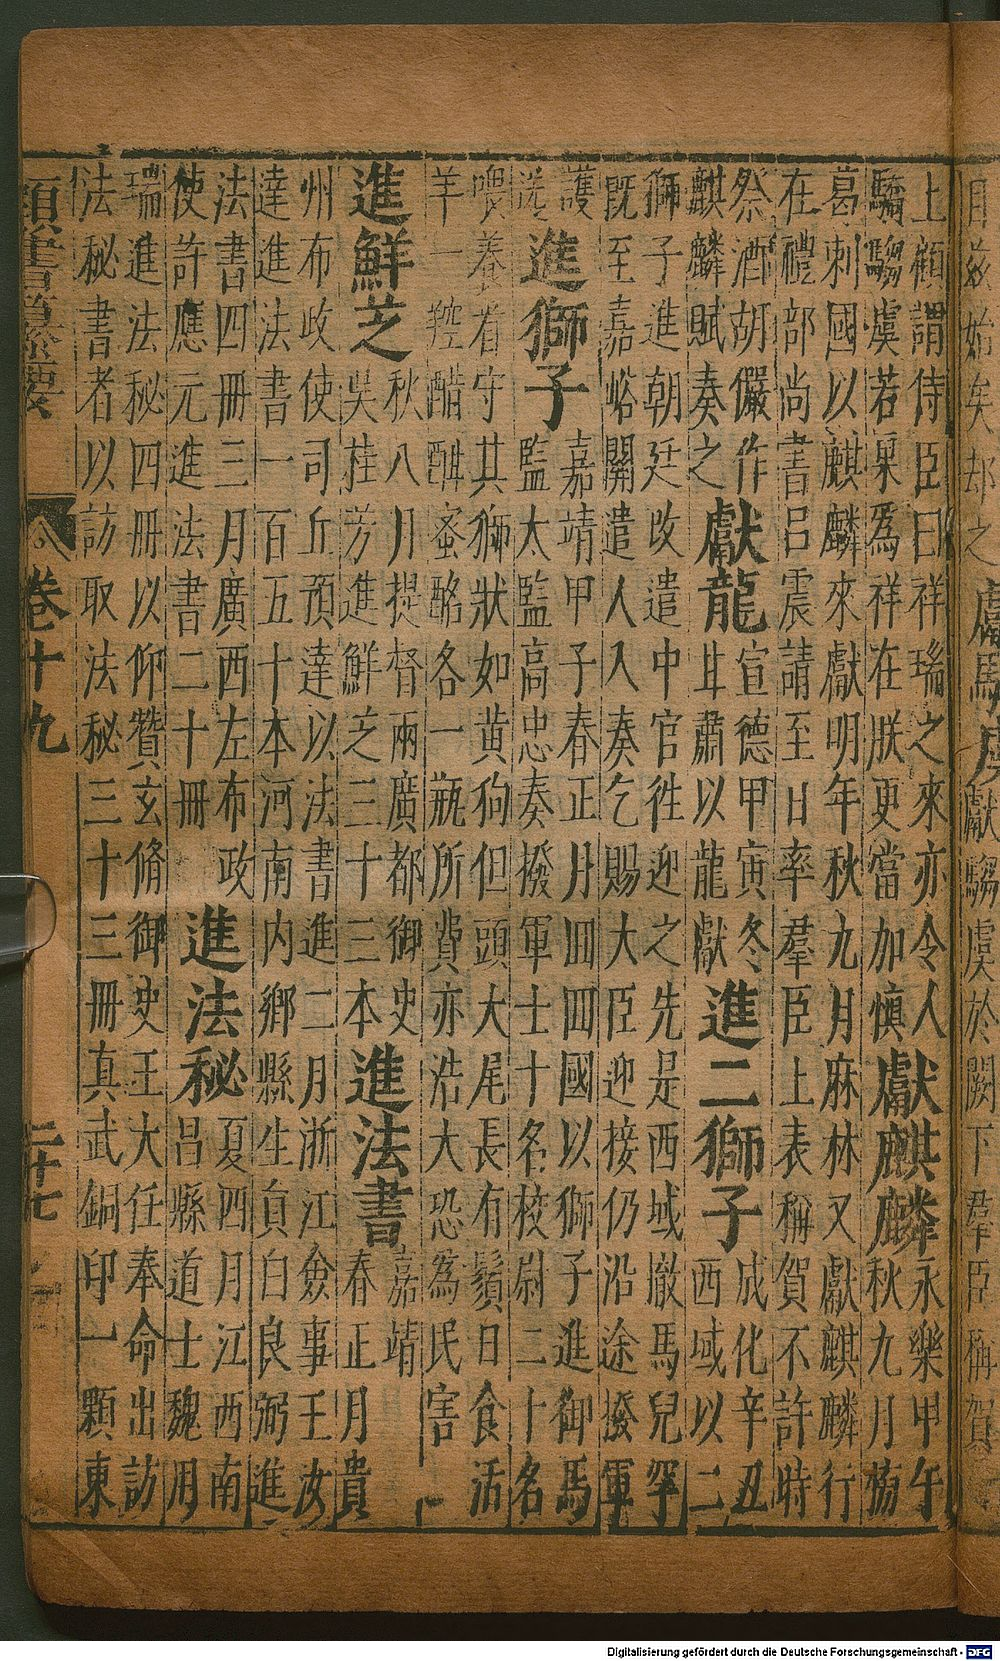 上顧謂侍臣曰祥瑞之來亦令人
騶虞若果為祥在朕更當加慎
獻麒麟
永樂甲午
秋九月榜
葛剌國以麒麟來獻明年秋九月麻林又獻麒麟行
在禮部尚書呂震請至日率羣臣上表稱賀不許時
祭酒胡儼作
麒麟賦奏之
獻龍
宣德甲寅冬
甘肅以龍獻
進二獅子
成化辛丑
西域以二
獅子進朝廷改遣中官徃迎之先是西域撒馬兒罕
既至嘉峪關遣人入奏乞賜大臣迎接仍沿途撥軍
護
送
進獅子
嘉靖甲子春正月回回國以獅子進御馬
監太監高忠奏撥軍士十名校尉二十名
喂養者守其獅狀如黃狗但頭大尾長有鬚日食活
羊一羫醋酣蜜酪各一瓶所費亦浩大恐為民害
進鮮芝
秋八月提督兩廣都御史
吳桂芳進鮮芝三十三本
進法書
嘉靖
春正月貴
州布政使司丘預達以法書進二月浙江僉事王汝
達進法書一百五十本河南內鄉縣生員白良弼進
法書四冊三月廣西左布政
使許應元進法書二十冊
進法秘
夏四月江西南
昌縣道士魏用
瑞進法秘四冊以仰贊玄脩御史王大任奉命出訪
法秘書者以訪取法秘三十三冊真武銅印一顆東
卷十九
二十七
Digitalisierung gefördert durch die Deutsche Forschungsgemeinschaft - DFG